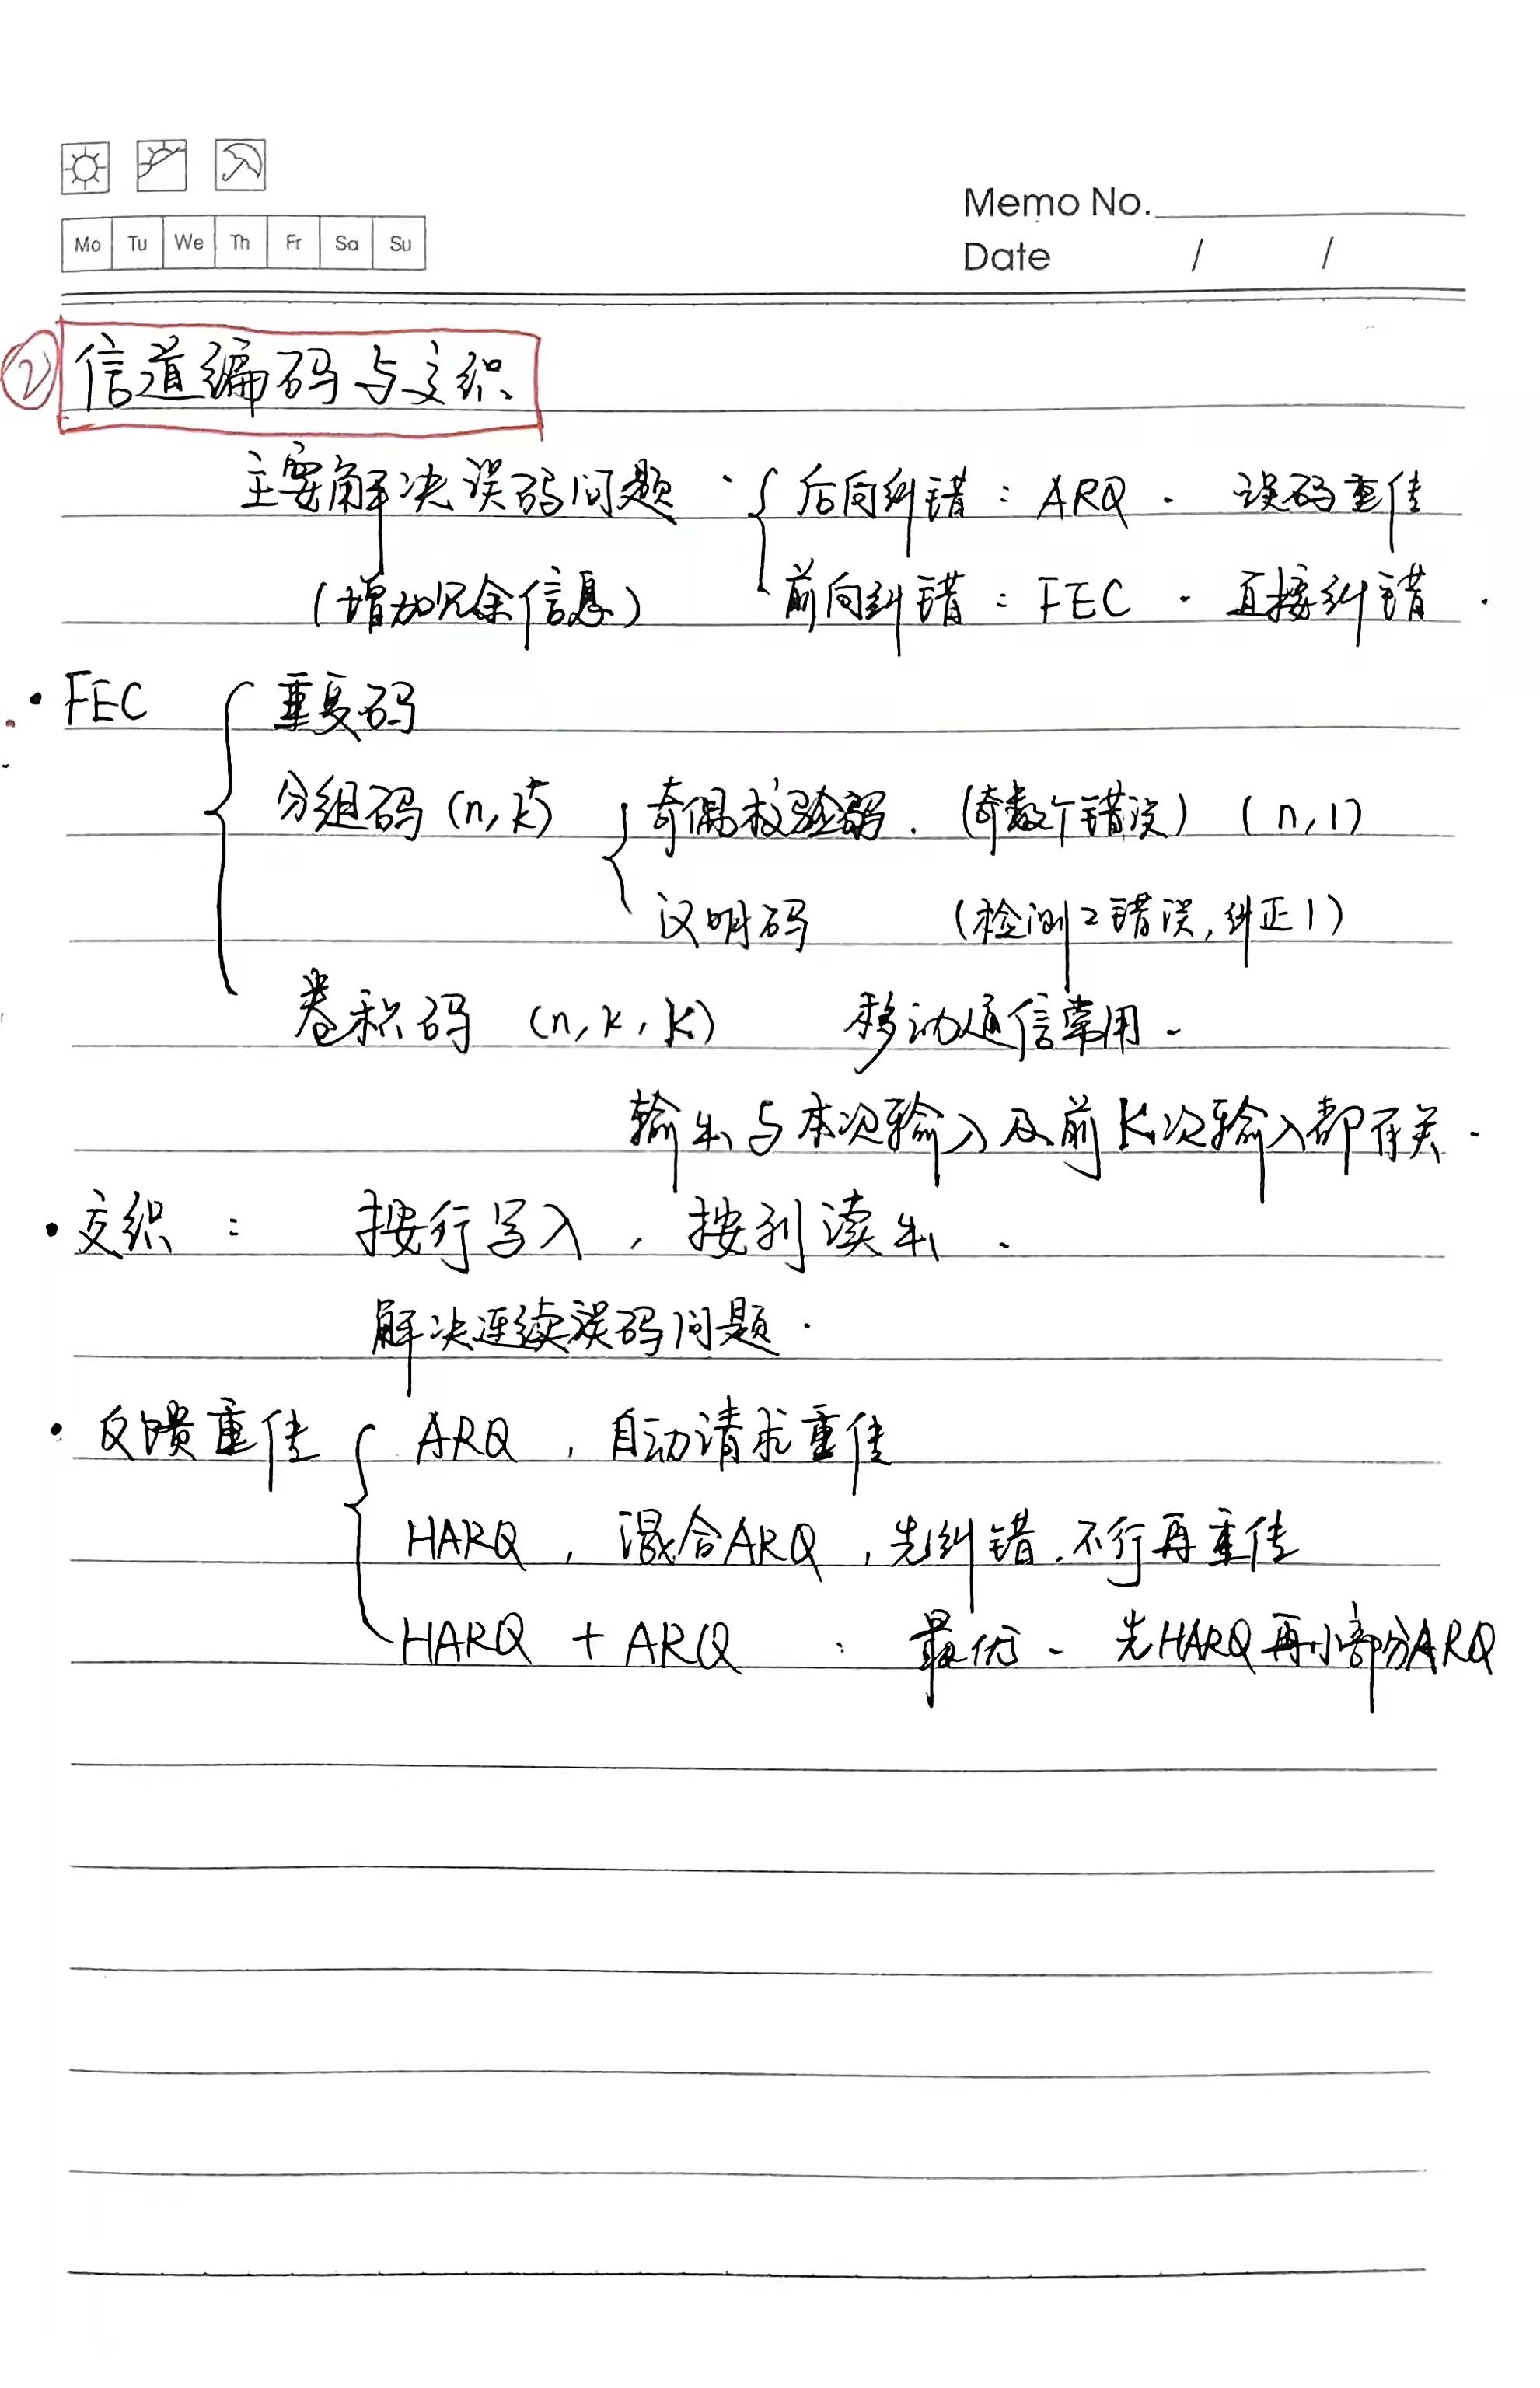 Memo No.
Mo Tu We Th Fr Sa Su
Date / /
② 信道编码与交织
主要解决误码问题 { 后向纠错：ARQ. 误码重传
(增加冗余信息) 前向纠错：FEC. 直接纠错.
· FEC { 重复码
分组码 (n, k) { 奇偶校验码. (奇数个错误) (n, 1)
汉明码 (检测2错误, 纠正1)
卷积码 (n, k, K) 移动通信常用.
输出与本次输入及前K次输入都有关.
· 交织： 按行写入, 按列读出.
解决连续误码问题.
· 反馈重传 { ARQ, 自动请求重传
HARQ, 混合ARQ, 先纠错, 不行再重传
HARQ + ARQ : 最优. 先HARQ再小部分ARQ